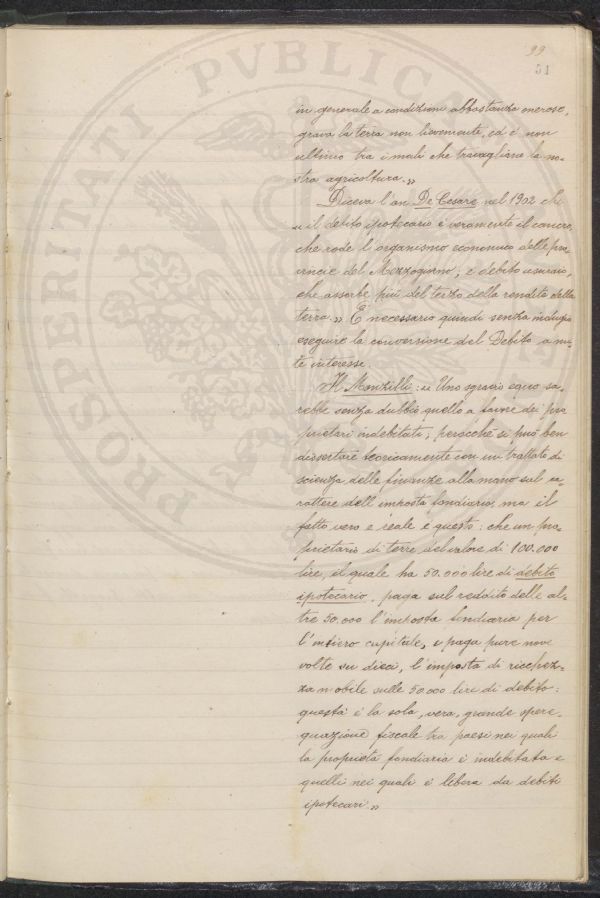 99
51
in generale a condizioni abbastanza onerose,
grava la terra non lievemente, ed è non
ultimo tra i mali che travagliano la no-
stra agricoltura.»
Diceva l'on De Cesare nel 1902 che
«il debito ipotecario è veramente il cancro,
che rode l'organismo economico delle pro-
vincie del Mezzogiorno, e debito usuraio,
che assorbe più del terzo della rendita della
terra.» È necessario quindi senza indugio
eseguire la conversione del Debito a mi-
te interesse.
Il Monzilli: «Uno sgravio equo sa-
rebbe senza dubbio quello a favore dei pro
prietari indebitati; perocchè si può ben
dissertare teoricamente con un trattato di
scienza delle finanze alla mano sul ca-
rattere dell'imposta fondiaria, ma il
fatto vero e reale è questo: che un pro-
prietario di terre del valore di 100.000
lire, il quale ha 50.000 lire di debito
ipotecario, paga sul reddito delle al-
tre 50.000 l'imposta fondiaria per
l'intiero capitale, e paga pure nove
volte su dieci, l'imposta di ricchez-
za mobile sulle 50.000 lire di debito:
questa è la sola, vera, grande spere-
quazione fiscale tra paesi nei quali
la proprietà fondiaria è indebitata e
quelli nei quali è libera da debiti
ipotecari.»
PROSPERITATI PUBLICAE